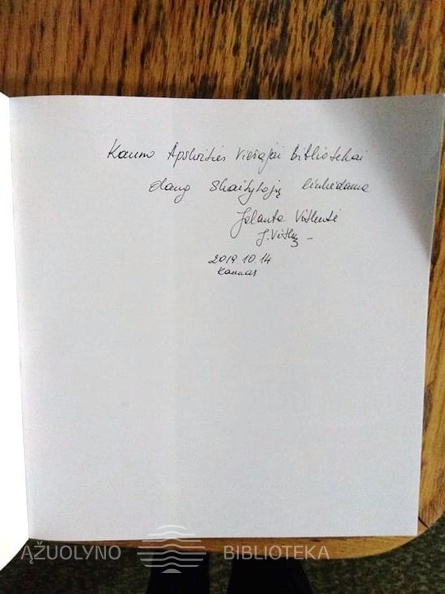 Kauno Apskrities Viešajai bibliotekai
daug skaitytojų linkėdama
Jolanta
2019.10.14
Kaunas
AŽUOLYNO BIBLIOTEKA